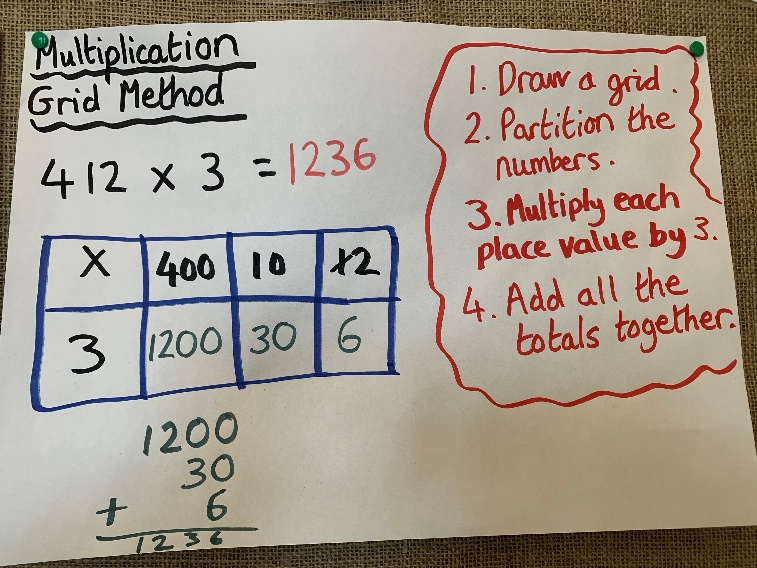 Multiplication
Grid Method
412 x 3 = 1236
X 400 10 2
3 1200 30 6
1200
30
+ 6
1236
1. Draw a grid.
2. Partition the
numbers.
3. Multiply each
place value by 3.
4. Add all the
totals together.